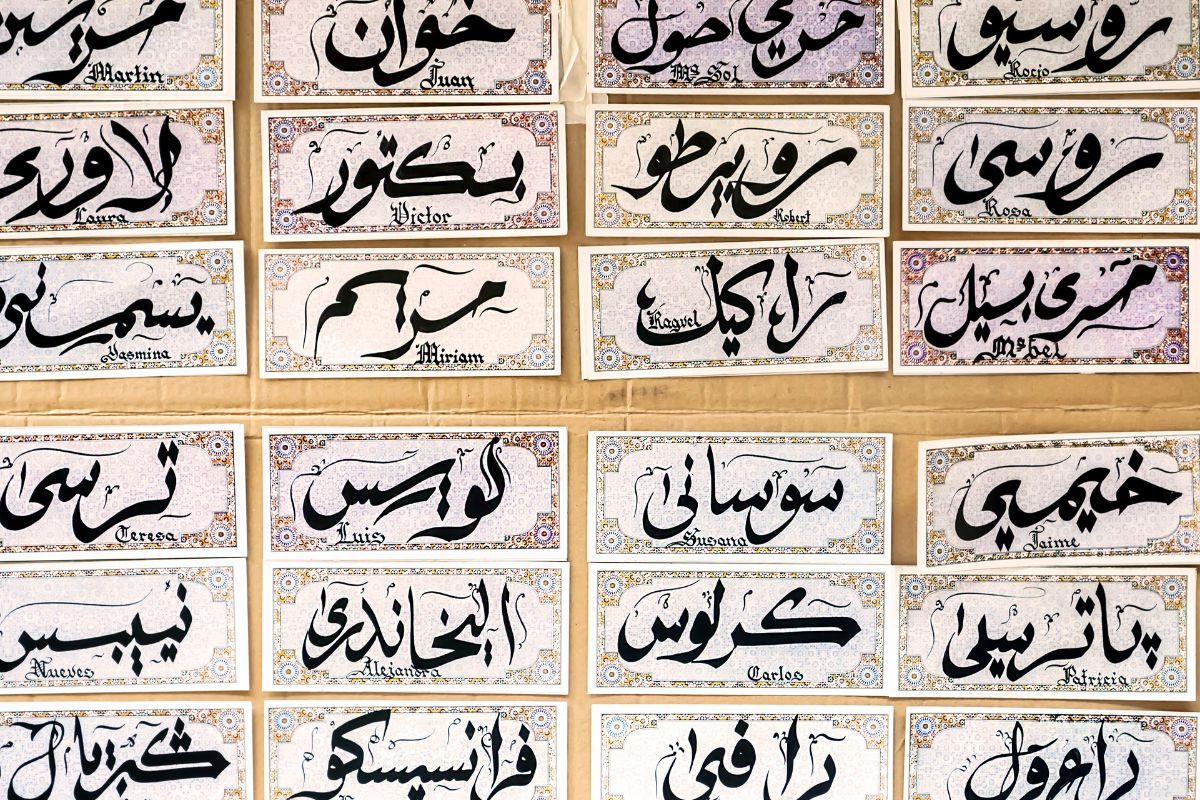 مرتين
Martin
خوان
Juan
مري صول
Mª Sol
روسيو
Rocio
لاورى
Laura
بكتور
Victor
روبيرطو
Robert
روسى
Rosa
يسمينى
Yasmina
مريم
Miriam
راكيل
Raquel
مرى بيل
Mªbel
ترسى
Teresa
لويس
Luis
سوسانى
Susana
خيمي
Jaime
نيبس
Nueves
اليخاندرى
Alejandra
كرلوس
Carlos
پاترسيى
Patricia
فرانسيسكو
رافيى
راعول